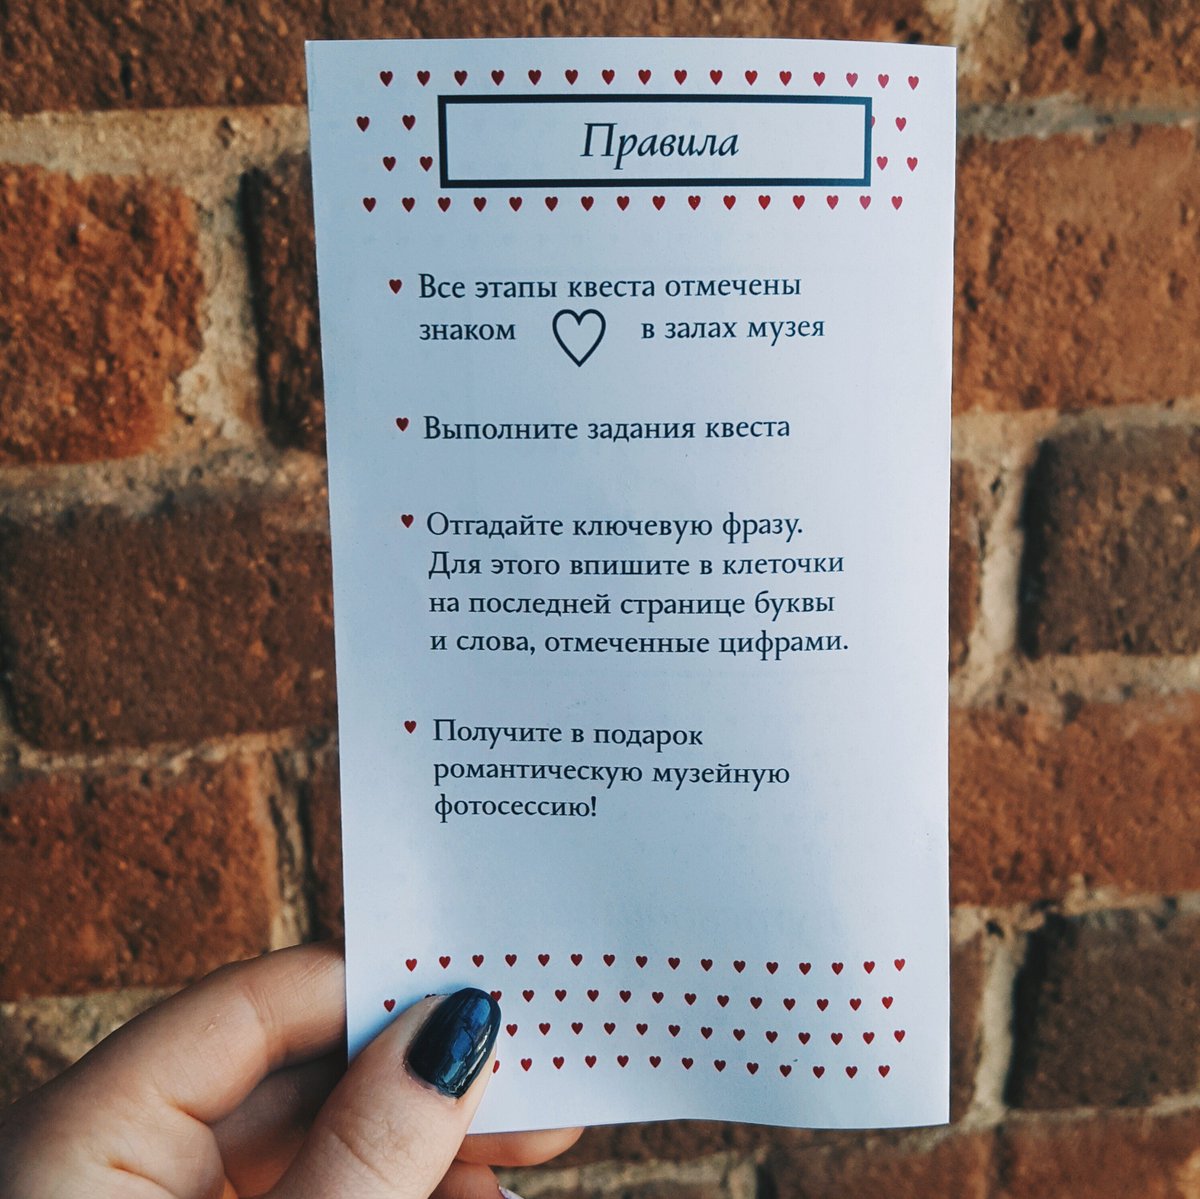 Правила
Все этапы квеста отмечены
знаком в залах музея
Выполните задания квеста
Отгадайте ключевую фразу.
Для этого впишите в клеточки
на последней странице буквы
и слова, отмеченные цифрами.
Получите в подарок
романтическую музейную
фотосессию!